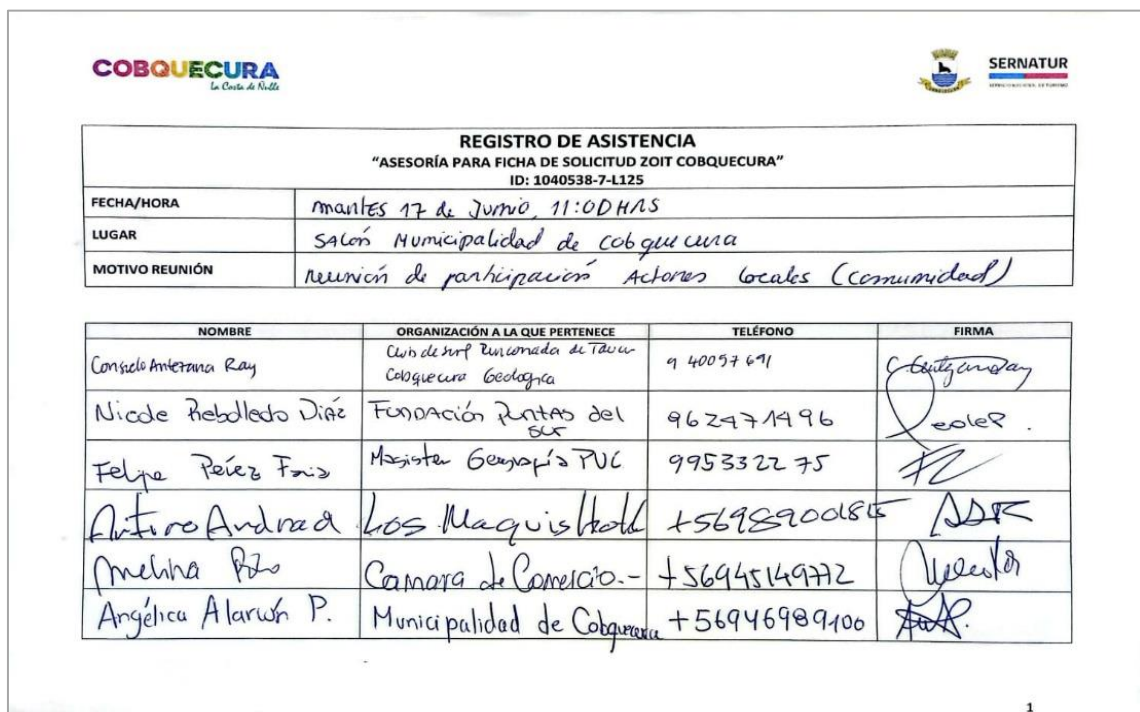 COBQUECURA
La Costa de Ñuble
SERNATUR
REGISTRO DE ASISTENCIA
"ASESORÍA PARA FICHA DE SOLICITUD ZOIT COBQUECURA"
ID: 1040538-7-L125
FECHA/HORA martes 17 de Junio, 11:00 HRS
LUGAR SALÓN Municipalidad de Cobquecura
MOTIVO REUNIÓN reunión de participación Actores locales (comunidad)
NOMBRE ORGANIZACIÓN A LA QUE PERTENECE TELÉFONO FIRMA
Consuelo Antezana Ray Club de surf Rinconada de Taucu 9 40057691
Cobquecura Geologica
Nicole Rebolledo Diaz Fundación Puntas del sur 962471496
Felipe Pérez Magister Geografía PUC 995332275
Arturo Andrad Los Maquis +56989001815
Melina Camara de Comercio.- +56945149772
Angélica Alarcón P. Municipalidad de Cobquecura +56946989100
1